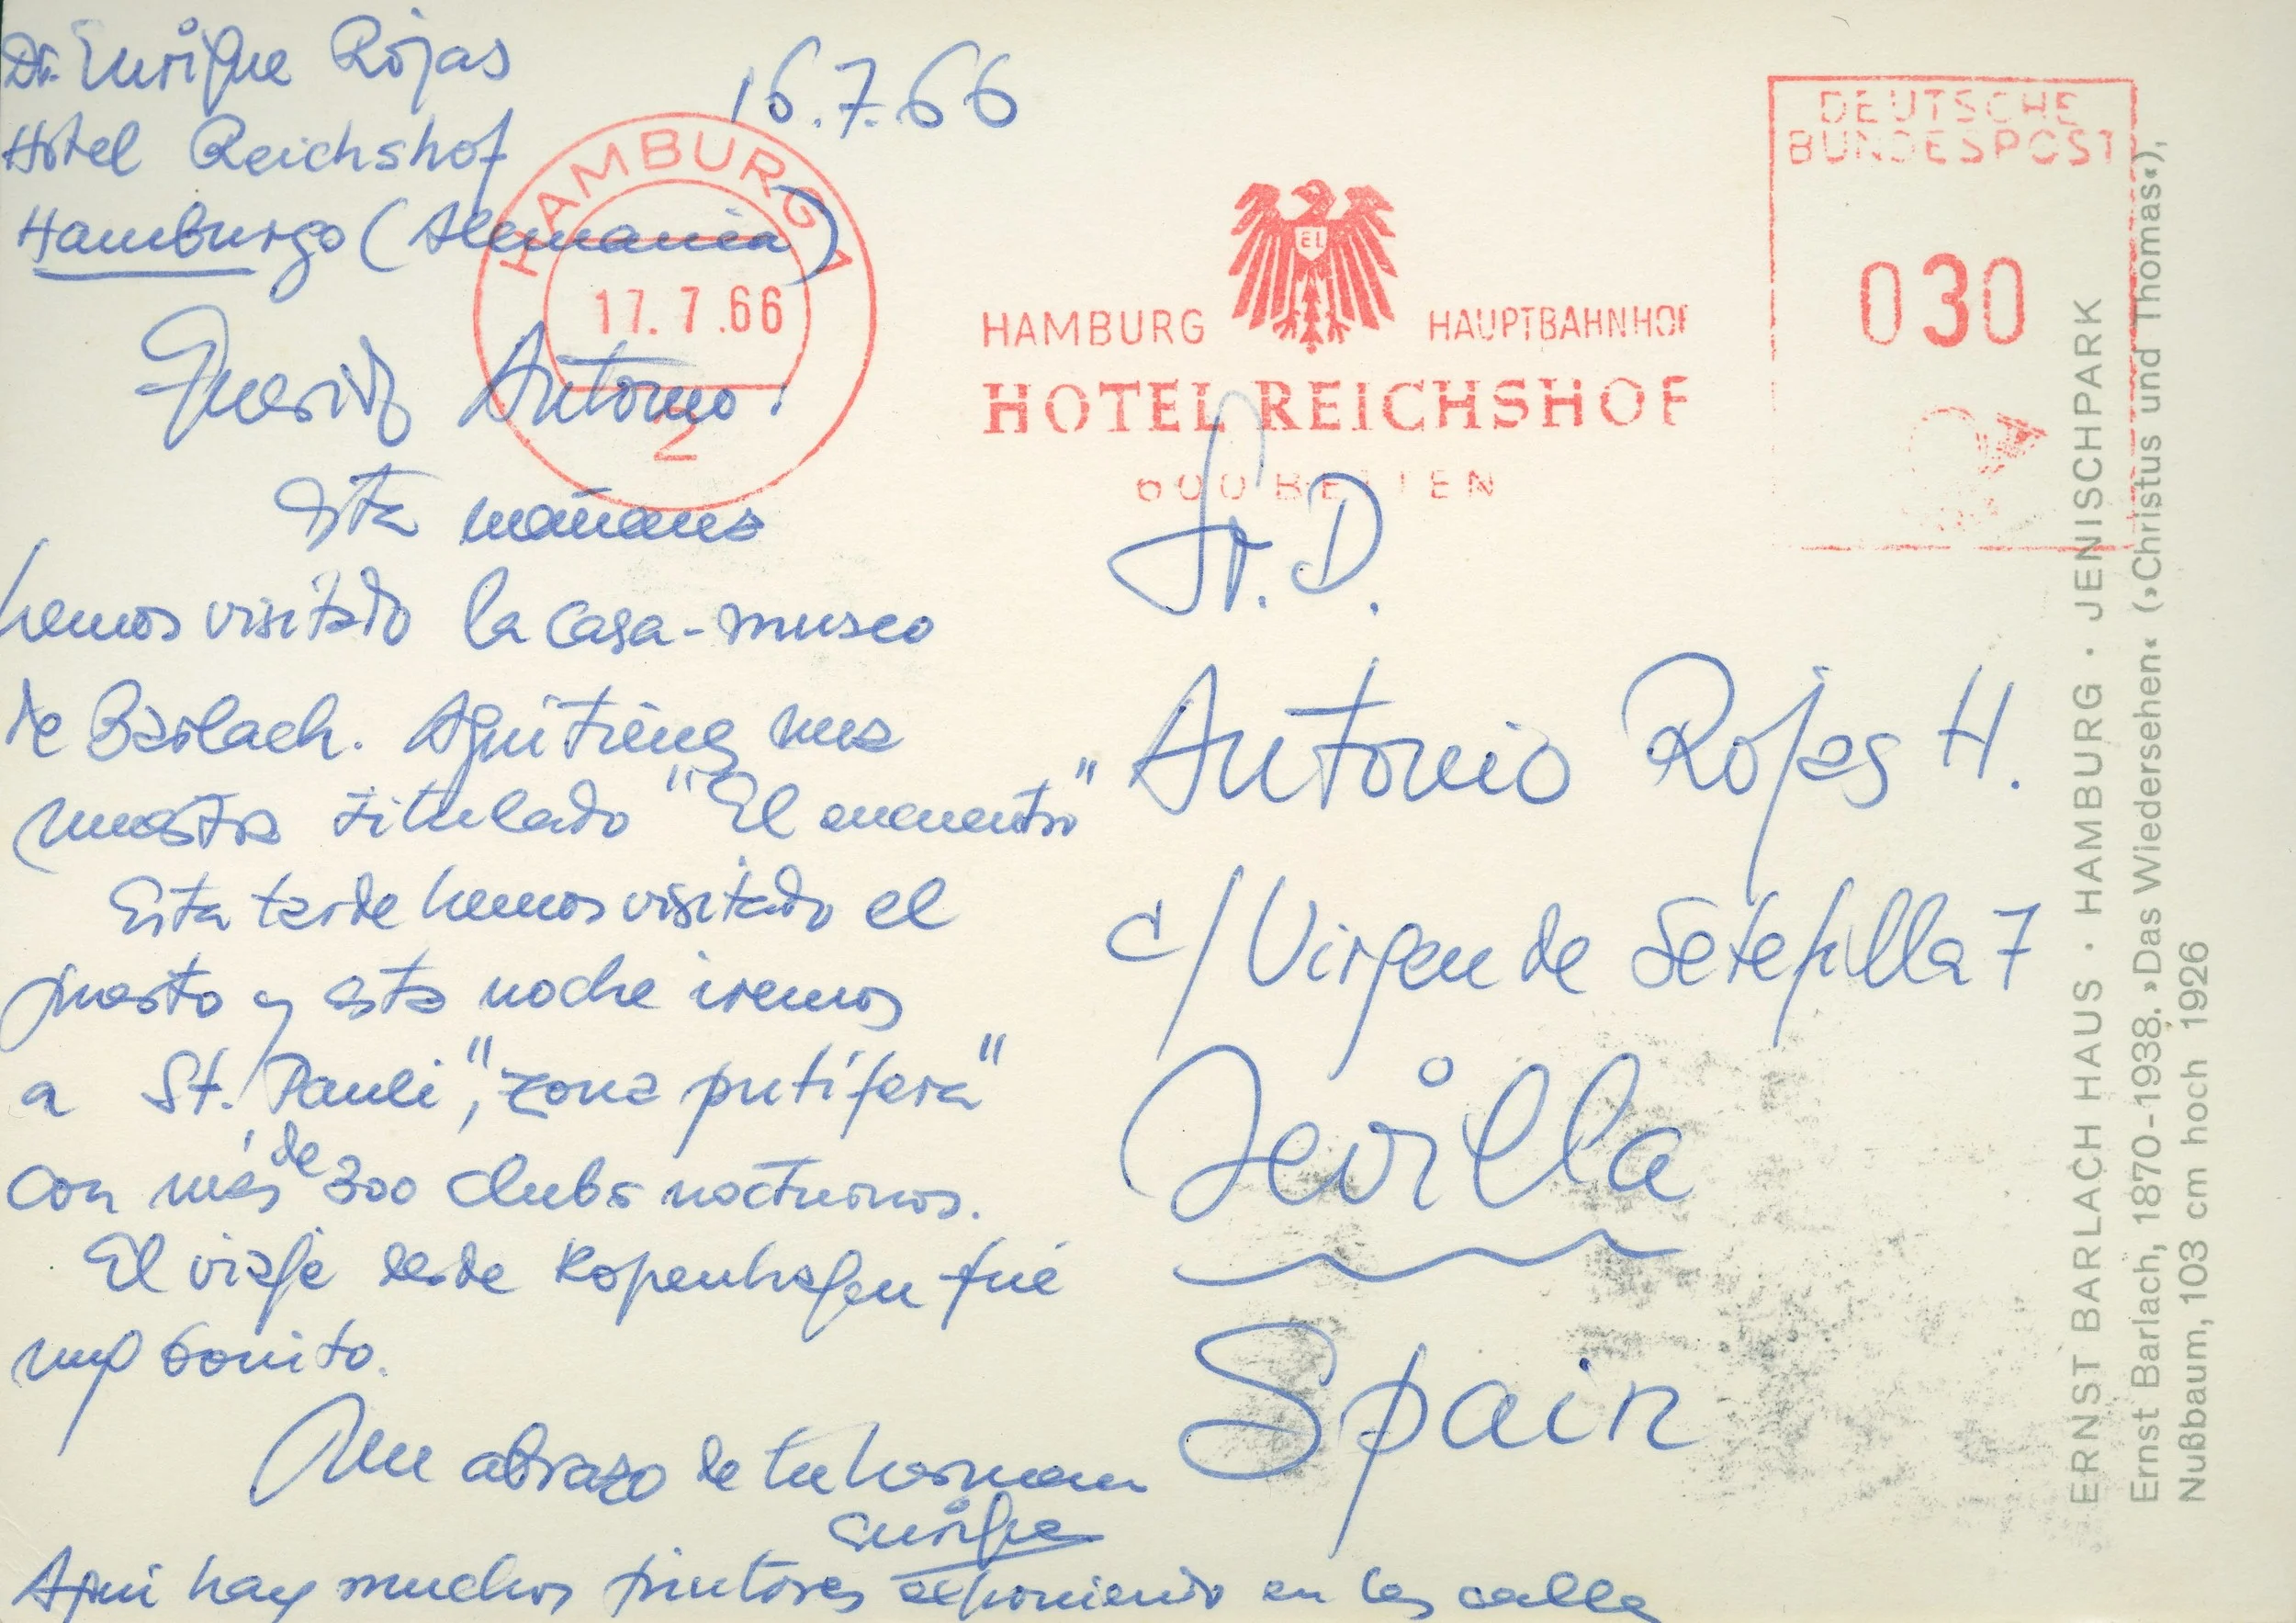 Dr. Enrique Rojas
Hotel Reichshof
Hamburgo (Alemania)
16.7.66
Querido Antonio:
Esta mañana
hemos visitado la casa-museo
de Barlach. Aqui tienes una
muestra titulado "El encuentro"
Esta tarde hemos visitado el
puerto y esta noche iremos
a St. Pauli, "zona putífera"
con más de 300 clubs nocturnos.
El viaje desde Kopenhagen fué
muy bonito.
Un abrazo de tu hermano
Enrique
Aqui hay muchos pintores exponiendo en las calle
HAMBURG 1
17.7.66
2
HAMBURG HAUPTBAHNHOF
EL
HOTEL REICHSHOF
600 BETTEN
DEUTSCHE
BUNDESPOST
030
Sr. D.
Antonio Rojas H.
c/ Virgen de Setefilla 7
Sevilla
Spain
ERNST BARLACH HAUS · HAMBURG · JENISCHPARK
Ernst Barlach, 1870-1938. »Das Wiedersehen« (»Christus und Thomas«),
Nußbaum, 103 cm hoch 1926